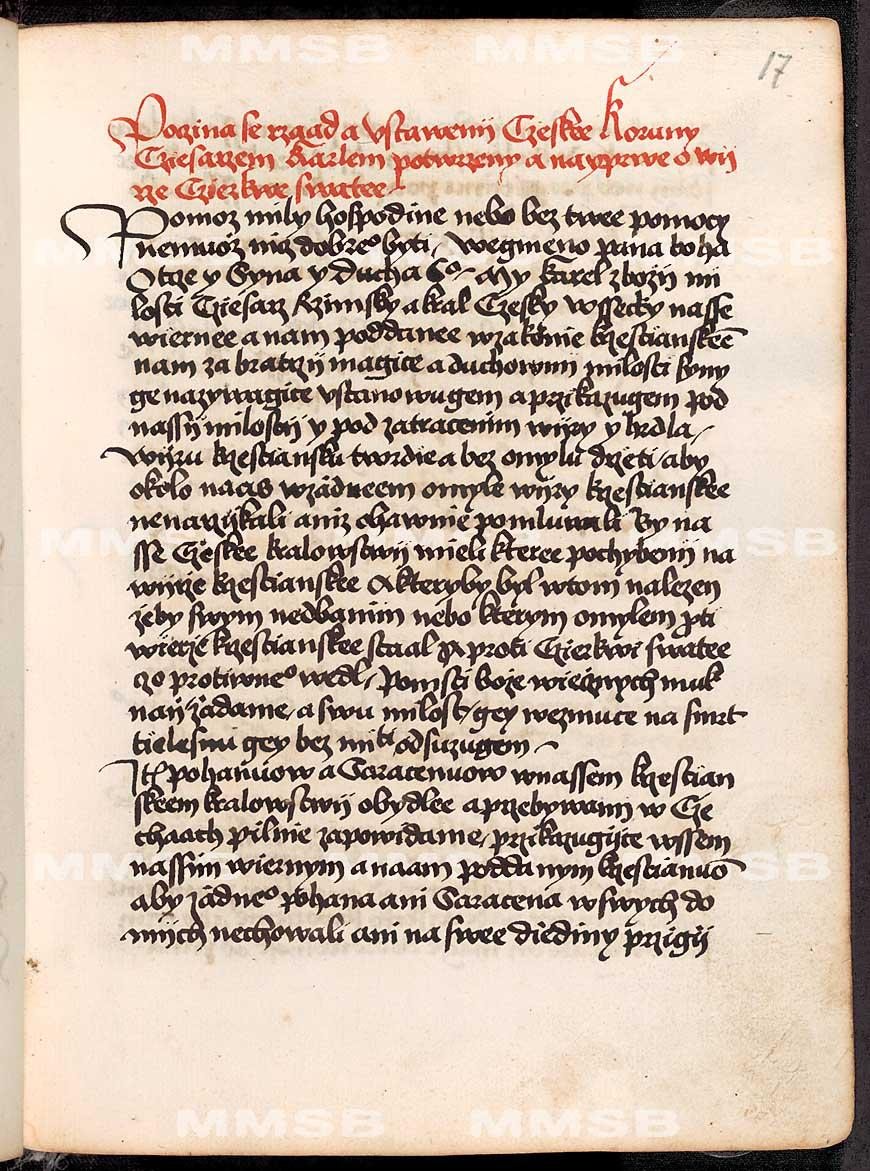 17
Poczina se rzaad a vstawenij Czeskee Koruny
Cziesarzem Karlem potwrzeny a nayprwe o wij
rze Czierkwe swatee
Pomoz mily hospodine nebo bez twee pomocy
nemuoz nicz dobreº byti, Wegmeno pana boha
Otcze y Syna y Ducha Sº My Karel z bozij mi
losti Cziesarz Rzimsky a kral Czesky wssecky nasse
wiernee a nam poddanee w zakonie krzestianskee
nam za bratrzij magicze a duchownij milosti syny
ge nazywagicze vstanowugem a przikazugem pod
nassij milostij y pod zatracenim wijry y hrdla,
wijru krzestiansku twrdie a bez omylu drzeti, aby
okolo nacis w zadneem omyle wijry krzestianskee
nenarzijkali aniz ohawnie pomluwali By na
sse Czeskee kralowstwij mieli kteree pochybenij na
wijrze krzestianskee A kteryby byl w tom nalezen
zeby swym nedbanim nebo kterym omylem pti
wierze krzestianskee staal a proti Czierkwi swatee
czo protiwneº wedl, Pomsti boze wiecznych muk
naij zadame, a swu milost, gey wezmucze na smrt
tielesnu gey bez miti odsuzugem
Ite pohanuow a Saracenuow w nassem krzestian
skeem kralowstwij obydlee a przebywanij w Cze
chaach pilnie zapowidame, przikazugijcze wssem
nassim wiernym a naam poddanym krzestianuo
aby zadneº pohana ani Saracena w swych do
mijch nechowali ani na swee diediny przigij
MMSB